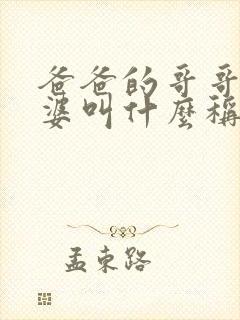 爸爸的哥哥
婆叫什麼稱
孟束路